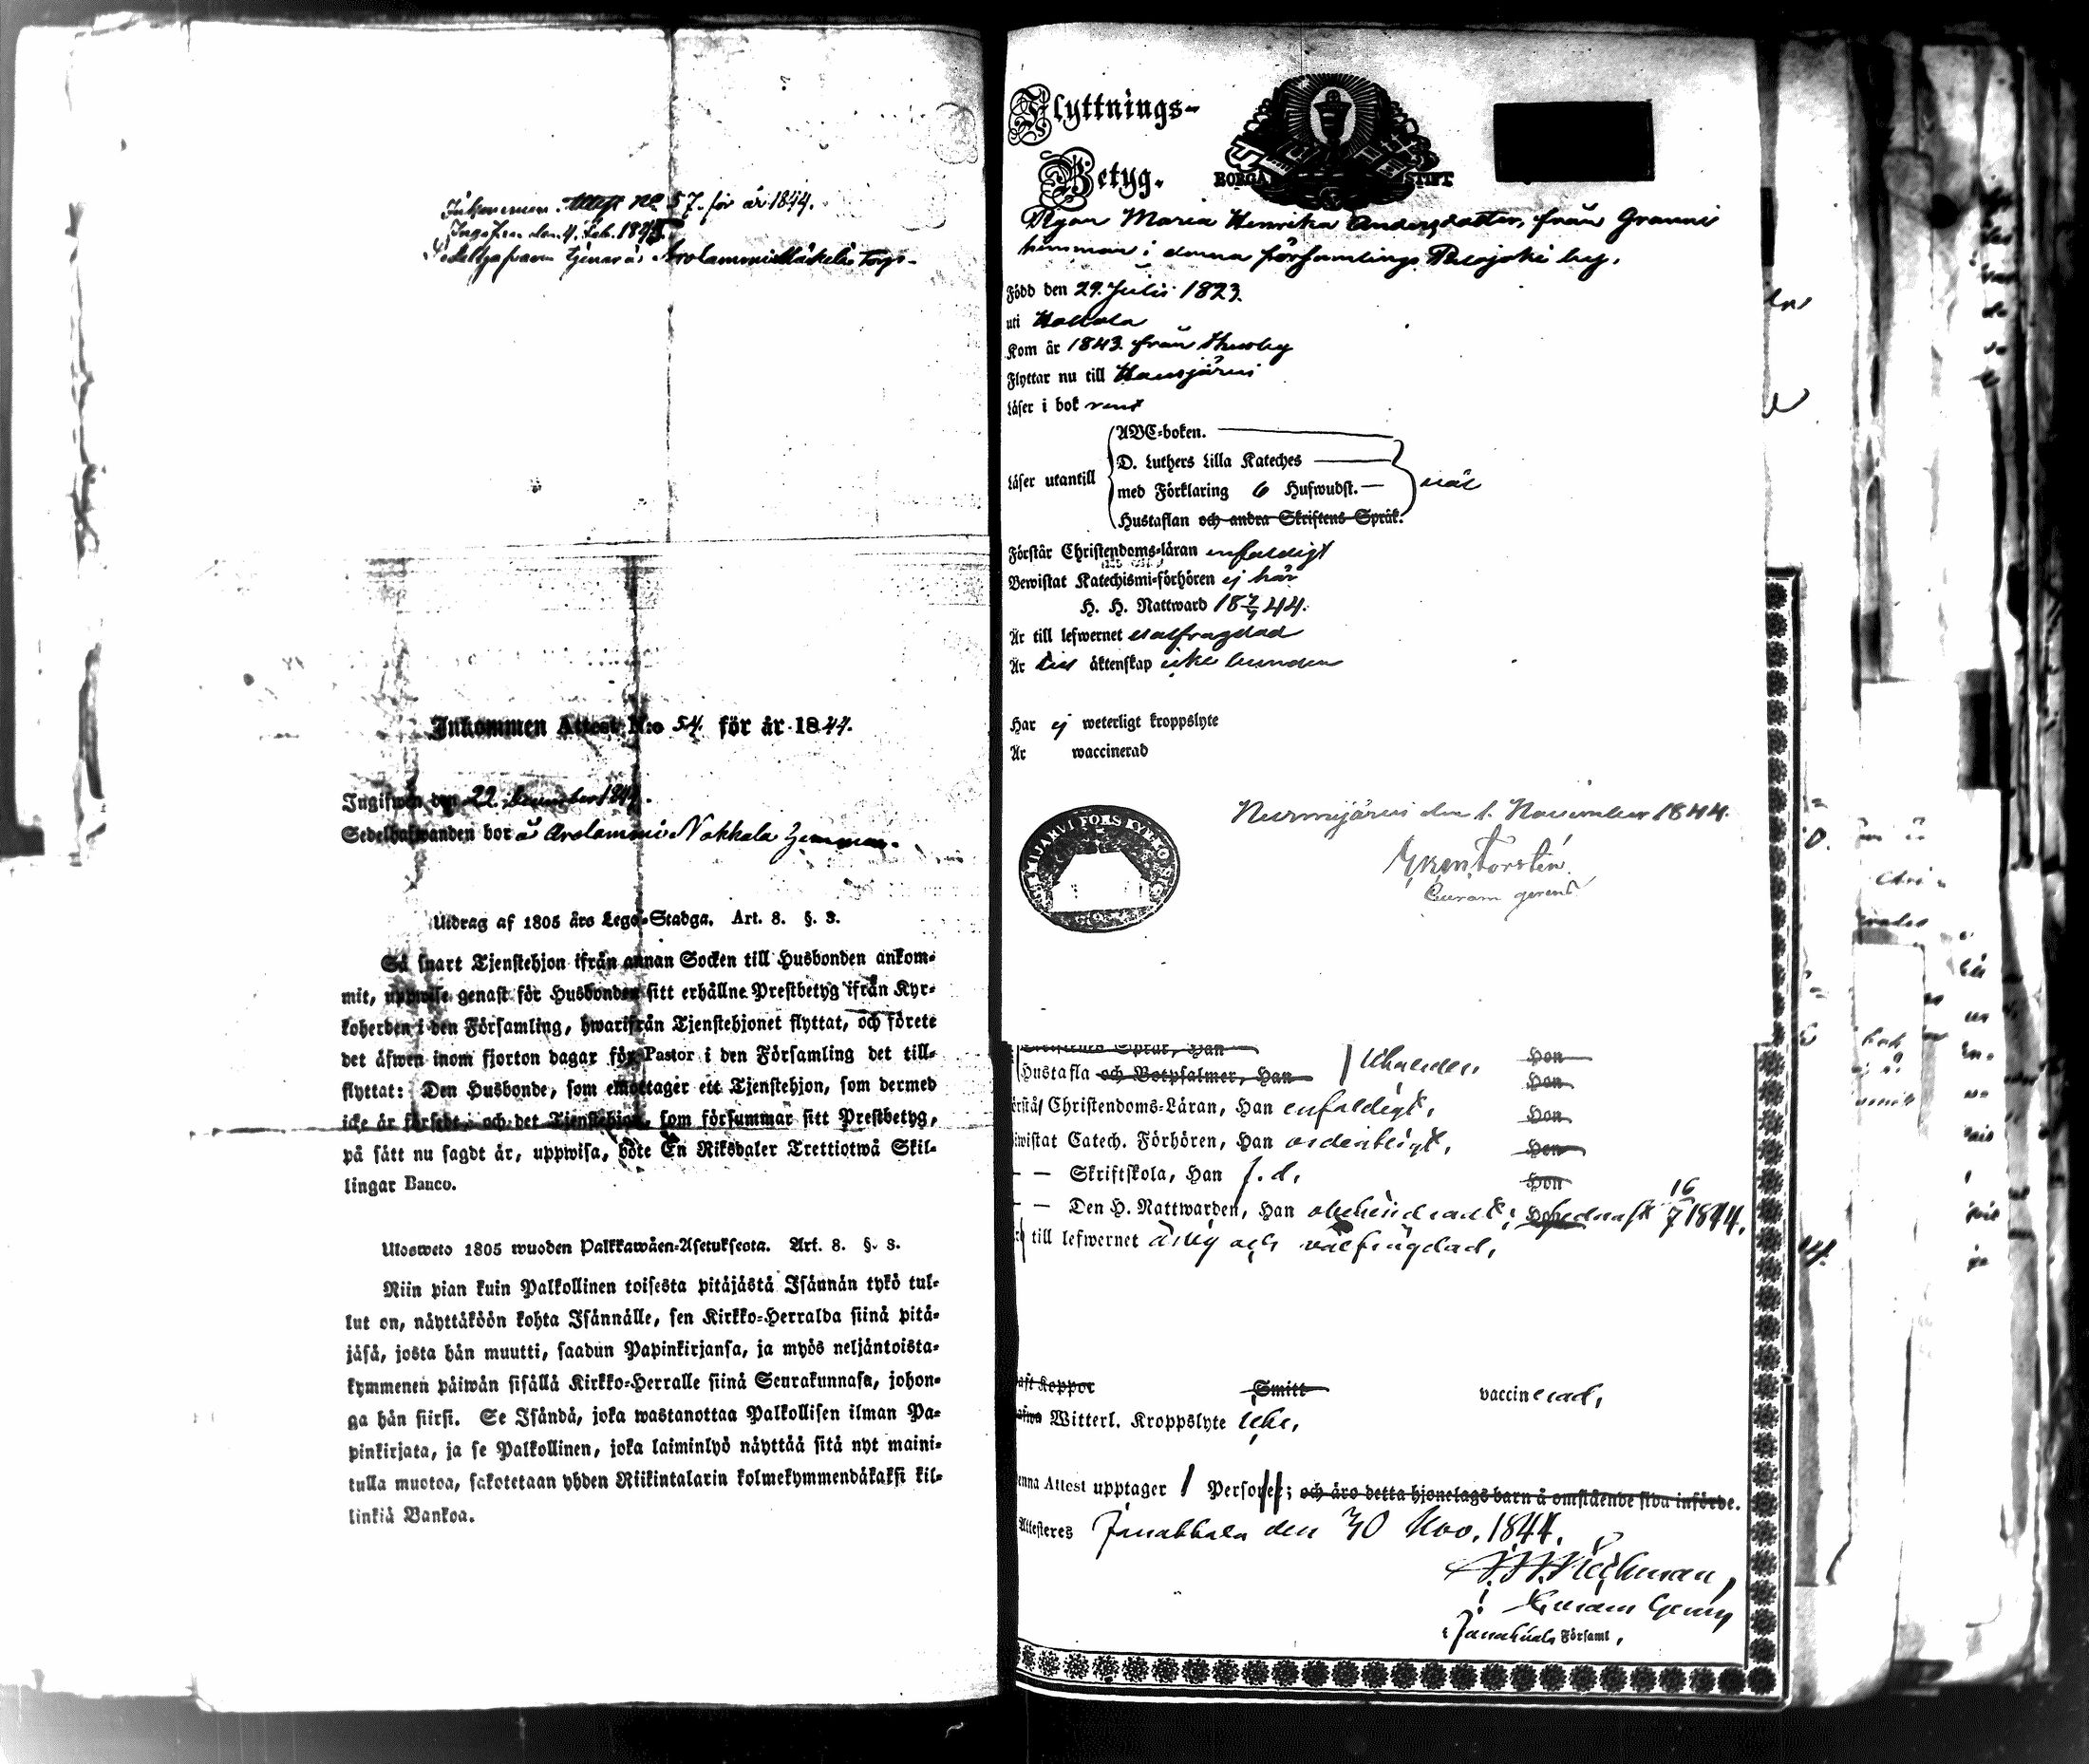 Inkommen Attest No 57. för år 1844.
Ingifven den 4. Feb. 1845
Sedelhafvaren tjenar å Arolammi Mäkelä Torp.
Inkommen Attest N:o 54. för år 1844.
Ingifwen den 22. December 1844.
Sedelhafwanden bor å Arolammi Nokkala hemman.
Utdrag af 1805 års Lego-Stadga. Art. 8. §. 3.
Så snart Tjenstehjon ifrån annan Socken till Husbonden ankom-
mit, uppwise genast för Husbonden sitt erhållne Prestbetyg ifrån Kyr-
koherden i den Församling, hwarifrån Tjenstehjonet flyttat, och förete
det äfwen inom fjorton dagar för Pastor i den Församling det till-
flyttat: Den Husbonde, som emottager ett Tjenstehjon, som dermed
icke är försedt, och det Tjenstehjon, som försummar sitt Prestbetyg,
på sätt nu sagdt är, uppwisa, böte En Riksdaler Trettiotwå Skil-
lingar Banco.
Ulosweto 1805 wuoden Palkkawäen-Asetuksesta. Art. 8. §. 3.
Niin pian kuin Palkollinen toisesta pitäjästä Isännän tykö tul-
lut on, näyttäköön kohta Isännälle, sen Kirkko-Herralda siinä pitä-
jäsä, josta hän muutti, saadun Papinkirjansa, ja myös neljäntoista-
kymmenen päiwän sisällä Kirkko-Herralle siinä Seurakunnasa, johon-
ga hän siirsi. Se Isändä, joka wastanottaa Palkollisen ilman Pa-
pinkirjata, ja se Palkollinen, joka laiminlyö näyttää sitä nyt maini-
tulla muotoa, sakotetaan yhden Riikintalarin kolmekymmendäkaksi kil-
linkiä Bankoa.
Flyttnings-
Betyg.
BORGÅ STIFT
Pigan Maria Henrika Andersdotter, från Granni
hemman i denna församlings Palojoki by.
Född den 29. Julii 1823.
uti Nokkala
Kom år 1843. från Thusby
Flyttar nu till Hausjärvi
Läser i bok rent
Läser utantill
ABC-boken.
D. Luthers Lilla Kateches
med Förklaring 6 Hufwudst. väl
Hustaflan och andra Skriftens Språk.
Förstår Christendoms-läran enfaldigt
Bewistat Katechismi-förhören ej här
H. H. Nattward 18 7/7 44.
Är till lefwernet välfrägdad
Är till äktenskap icke bunden
Har ej weterligt kroppslyte
Är waccinerad
Nurmijärvi den 1. November 1844.
Curam gerens
Skriftenes Språk, Han Hon
Hustafla och Botpsalmer, Han Hon
Förstår Christendoms-Läran, Han enfaldigt, Hon
Bewistat Catech. Förhören, Han ordentligt, Hon
— — Skriftskola, Han f. d, Hon
— — Den H. Nattwarden, Han obehindradt; Hon sednast 16/7 1844.
till lefwernet ärlig och välfrägdad,
haft Koppor Smitt vaccinerad,
Witterl. Kroppslyte icke,
Denna Attest upptager 1 Personer; och äro detta hjonelags barn å omstående sida införde.
Attesteres Janakkala den 30 Nov. 1844.
Curam Gerens
i Janakkala Församl,